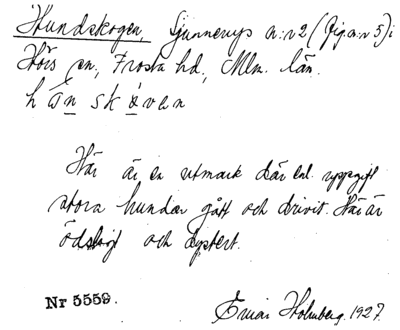 Hundskogen, Sjunnerup a:r 2 (fig. a:r 5) i
Hörs sn, Frosta hd, Mlm. län.
h å n s k å v e n
Här är en utmark där enl. uppgift
stora hundar gått och drivit. Här är
ödsligt och dystert.
Nr 5559.
Einar Holmberg. 1927.